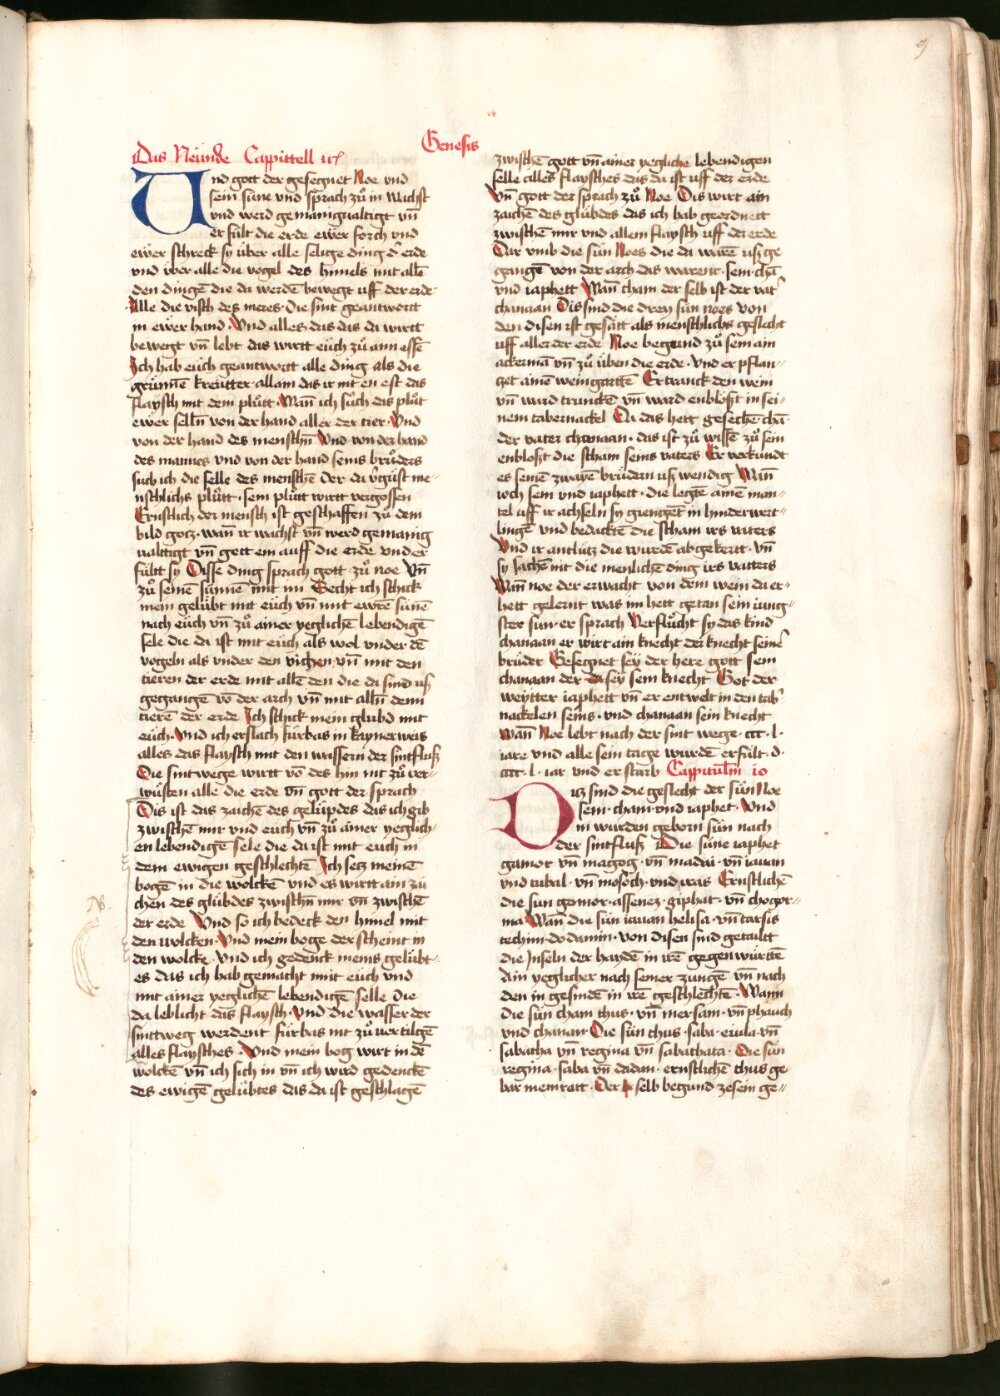 9
Genesis
Das Neünde Cappittell ix
Und gott der gesegnet Noe vnd
sein süne vnd sprach zů in Wachst
vnd werd gemanigualtigt vn̄
er fült die erde ewer forch vnd
ewer schreck sy über alle selige ding d' erde
vnd über alle die vogel des himels mit allē
den dingē die da werdē bewegt uff der erde
Alle die visch des meres · die sint geantwort
in ewer hand · Vnd alles das das da wirtt
bewegt vn̄ lebt das wirtt eüch zů ann essē
Ich hab eüch geantwortt alle ding als die
grünnē kreütter · allain das ir mit en est das
flaysch mit dem plůtt · Wan̄ ich sůch das plůt
ewer selln̄ von der hand aller der tier · Vnd
von der hand des menschn̄ Vnd von der hand
des mannes vnd von der hand seins brůders
such ich die selle des menschē Der da v'güst me
nschlichs plůtt · sein plůtt wirtt vergossen
Ernstlich der mensch ist geschaffen zů dem
bild gotz · wan̄ ir wachst vn̄ werd gemanig
ualttigt vn̄ gett ein auff die erde vnd er
fültt sy Disse ding sprach gott zů noe Vn̄
zů seinē sünnē mit im Secht ich schick
mein gelübt mit eüch vn̄ mit ewrē sünē
nach eüch vn̄ zů ainer yeglichē lebendigē
sele die da ist mit eüch als wol vnder dē
vogeln als vnder den vichen vn̄ mit den
tieren der erde mit allē den die da sind uß
gegangē vō der arch vn̄ mit alln̄ denn
tierē der erde Ich schick mein glubd mit
eüch · Vnd ich erslach fürbas in kaynerweis
alles das flaysch mit den wassern der sintfluß
Die sintwege wirtt vō des hin nit zů ver
wüsten alle die erde Vn̄ gott der sprach
Dis ist das zaichē des gelüpdes das ich gib
zwischē mir vnd euch vn̄ zů ainer yeglich
en lebendigē sele die da ist mit euch in
dem ewigen geschlechtē Ich setz meinē
bogē in die wolckē vnd es wirtt ain zai
chen des glübdes zwischn̄ mir vn̄ zwischē
der erde Vnd so ich bedeck den himel mit
den wolcken · Vnd mein boge der scheint in
den wolckē · Vnd ich gedenck meins gelübt
es das ich hab gemacht mit eüch vnd
mit ainer yeglichē lebendigē selle Die
da leblicht das flaysch · Vnd die wasser der
sinttweg werdent fürbas nit zů vertilgē
alles flaysches · Vnd mein bog wirt in dē
wolckē vn̄ ich sich in vn̄ ich wird gedenckē
des ewigē gelübtes das da ist geschlagē
zwischē gott vn̄ ainer yegliche lebendigen
selle alles flaysches das da ist uff der erde
Vn̄ gott der sprach zů Noe Dis wirt ain
zaichē des glübdes das ich hab geordnett
zwischē mir vnd allem flaysch uff der erde
Dar vmb die sün Noes die da warē uß ge
gangē von der arch das warent · sem · chā
vnd iaphett Wan̄ cham der selb ist der vat'
chanaan Dis sind die drey sün noes Von
den disen ist gesätt als menschlichs geslecht
uff aller der erde Noe begund zů sein ain
ackermā vn̄ zů üben die erde · Vnd er pflan
tzet ainē weingarttē Er tranck den wein
vn̄ ward trunckē vn̄ ward enblößt in sei
nem tabernackel Da das hett gesechē chā
der vater chanaan · das ist zů wissē zů sein
enblößt die scham seins vaters Er verkündt
es seinē zwayē brüdern uß wendig Wan̄
ioch sem vnd iaphett · die legtē ainē man
tel uff ir achseln sy giengēt in hinderwert
lingē vnd bedacktē die scham irs vaters
Vnd ir antlütz die wurdē abgekertt · vn̄
sy sachē nit die menlichē ding irs vatters
Wan̄ noe der erwacht von dem wein da er
hett gelernt was im hett getan sein iung
ster sun · er sprach Verflůcht sy das kind
chanaan er wirt ain knecht der knecht seinē
brüder Gesegnet sey der here gott sem
chanaan der da sey sein knecht Got der
weytter iaphett vn̄ er entwelt in den tab'
nackelen seins · vnd chanaan sein knecht
Wan̄ Noe lebt nach der sint wege · ccc · l ·
iare vnd alle sein tage wurdē erfült · d ·
cccc · l · iar vnd er starb Cappitulm̄ 10
Diz sind die geslecht der sün Noe
sem · cham · vnd iaphet · Vnd
in wurden geborn sün nach
der sintfluß Die süne iaphet
gamor vn̄ magog · vn̄ madai · vn̄ iauan
vnd tubal · vn̄ mosoch · vnd iras Ernstlichē
die sun gomor · assenez · giphat · vn̄ thogor
ma Wan̄ die sün iauan helisa · vn̄ tarsis
techim · dodanim · von disen sind getailtt
die Inseln der haydē in irē gegenwürtē
Ain yeglicher nach seiner zungē vn̄ nach
den in gesindē in irē geschlechtē · Wann
die sün cham thus · vn̄ mersam · vn̄ phauch
vnd chanan · Die sün thus · saba · euila · vn̄
sabatha vn̄ regina vn̄ sabathata · Die sün
regina · saba vn̄ dadan · ernstlichē thus ge
bar memrott · Der selb begund zesein ge
NB.